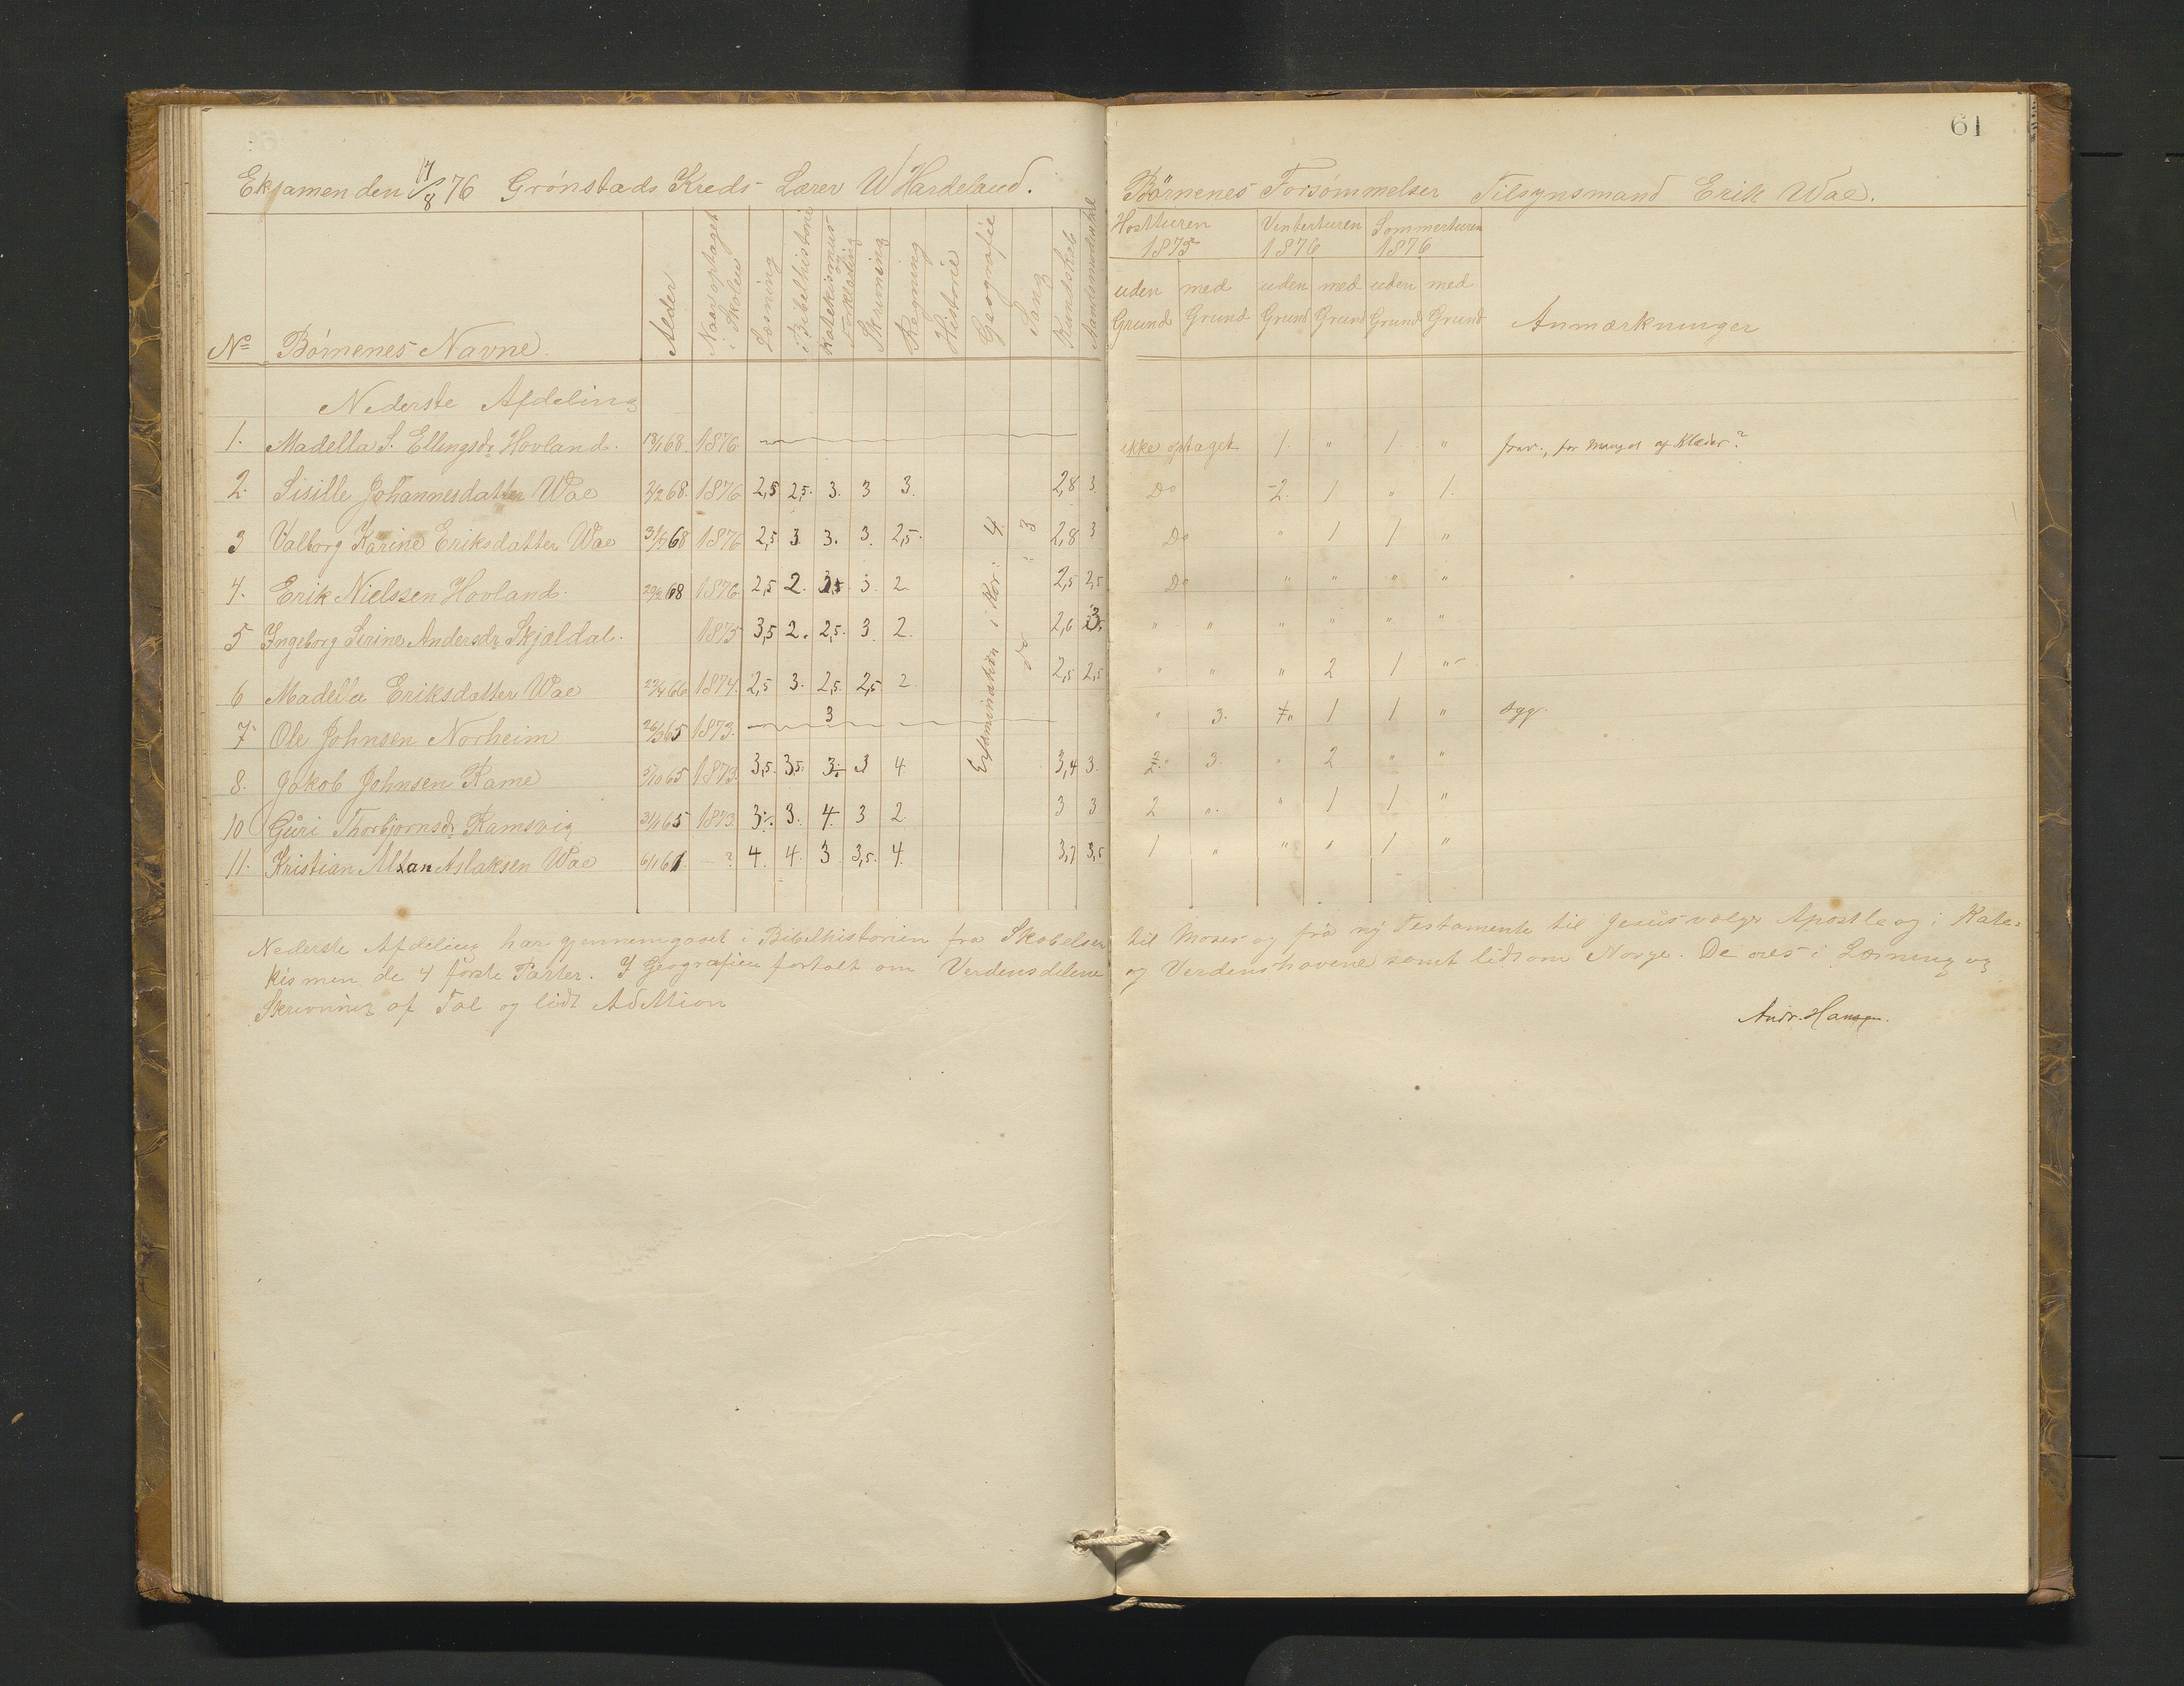 61
Eksamen den 17/8 76 Grönstads Kreds Lærer W Hardeland.
Börnenes Forsömmelser Tilsynsmand Erik Wae.
No Börnenes Navne. Alder Naar optaget i Skolen Læsning i Bibelhistorie Katekismus Forklaring Skrivning Regning Historie Geografie Sang Kundskab
Hostturen 1875 Vinterturen 1876 Sommerturen 1876
uden Grund med Grund uden Grund med Grund uden Grund med Grund Anmærkninger
Nederste Afdeling
1. Madella S. Ellingsdr Hovland. 1876 ikke optaget 1. " 1 " frav., for Mangel af Klæder?
2. Sisille Johannesdatter Wae 2/2 68. 1876 2,5 2,5. 3. 3 3. 2,8 3. Do 2. 1 " 1.
3 Valborg Karine Eriksdatter Wae 1876 2,5 3. 3. 3. 2,5. 2,8 3 Do " 1 1 "
4. Erik Nielssen Hovland. 1876. 2,5 2. 3. 2 2,5 2,5 Do " " " "
5 Ingeborg Serine Andersdr Skjoldal. 1875 3,5 2. 2,5. 3. 2. 2,6 3. " " " " " "
6 Madella Eriksdatter Wae 1874. 2,5 3. 2,5. 2,5 2 2,5 2,5 " " " 2 1 "
7 Ole Johnsen Norheim 1873. 3 " 3. 1 1 " syg.
8. Jakob Johnsen Rame 5/10 65 1873. 3,5. 3,5. 3 4. 3,4 3. 3. " 2 " "
10 Guri Thorbjornsdr Ramsvig 1873. 3. 4. 3 2 3 3 2 " " 1 1 "
11. Kristian Aslaksen Wae 6/1 61 ? 4. 4. 3. 3,5. 4. 3,7 3,5 1 " " " 1 "
Examination i Kor: 4
do " 3
Nederste Afdeling har gjennemgaaet i Bibelhistorien fra Skabelsen til Moses og fra ny Testamente til Jesus vælger Apostle og i Kate=
kismen de 4 förste Parter. I Geografien fortalt om Verdensdelene og Verdenshavene samt lidt om Norge. De öves i Læsning og
Skrivning af Tal og lidt Addition
Andr. Hansen.